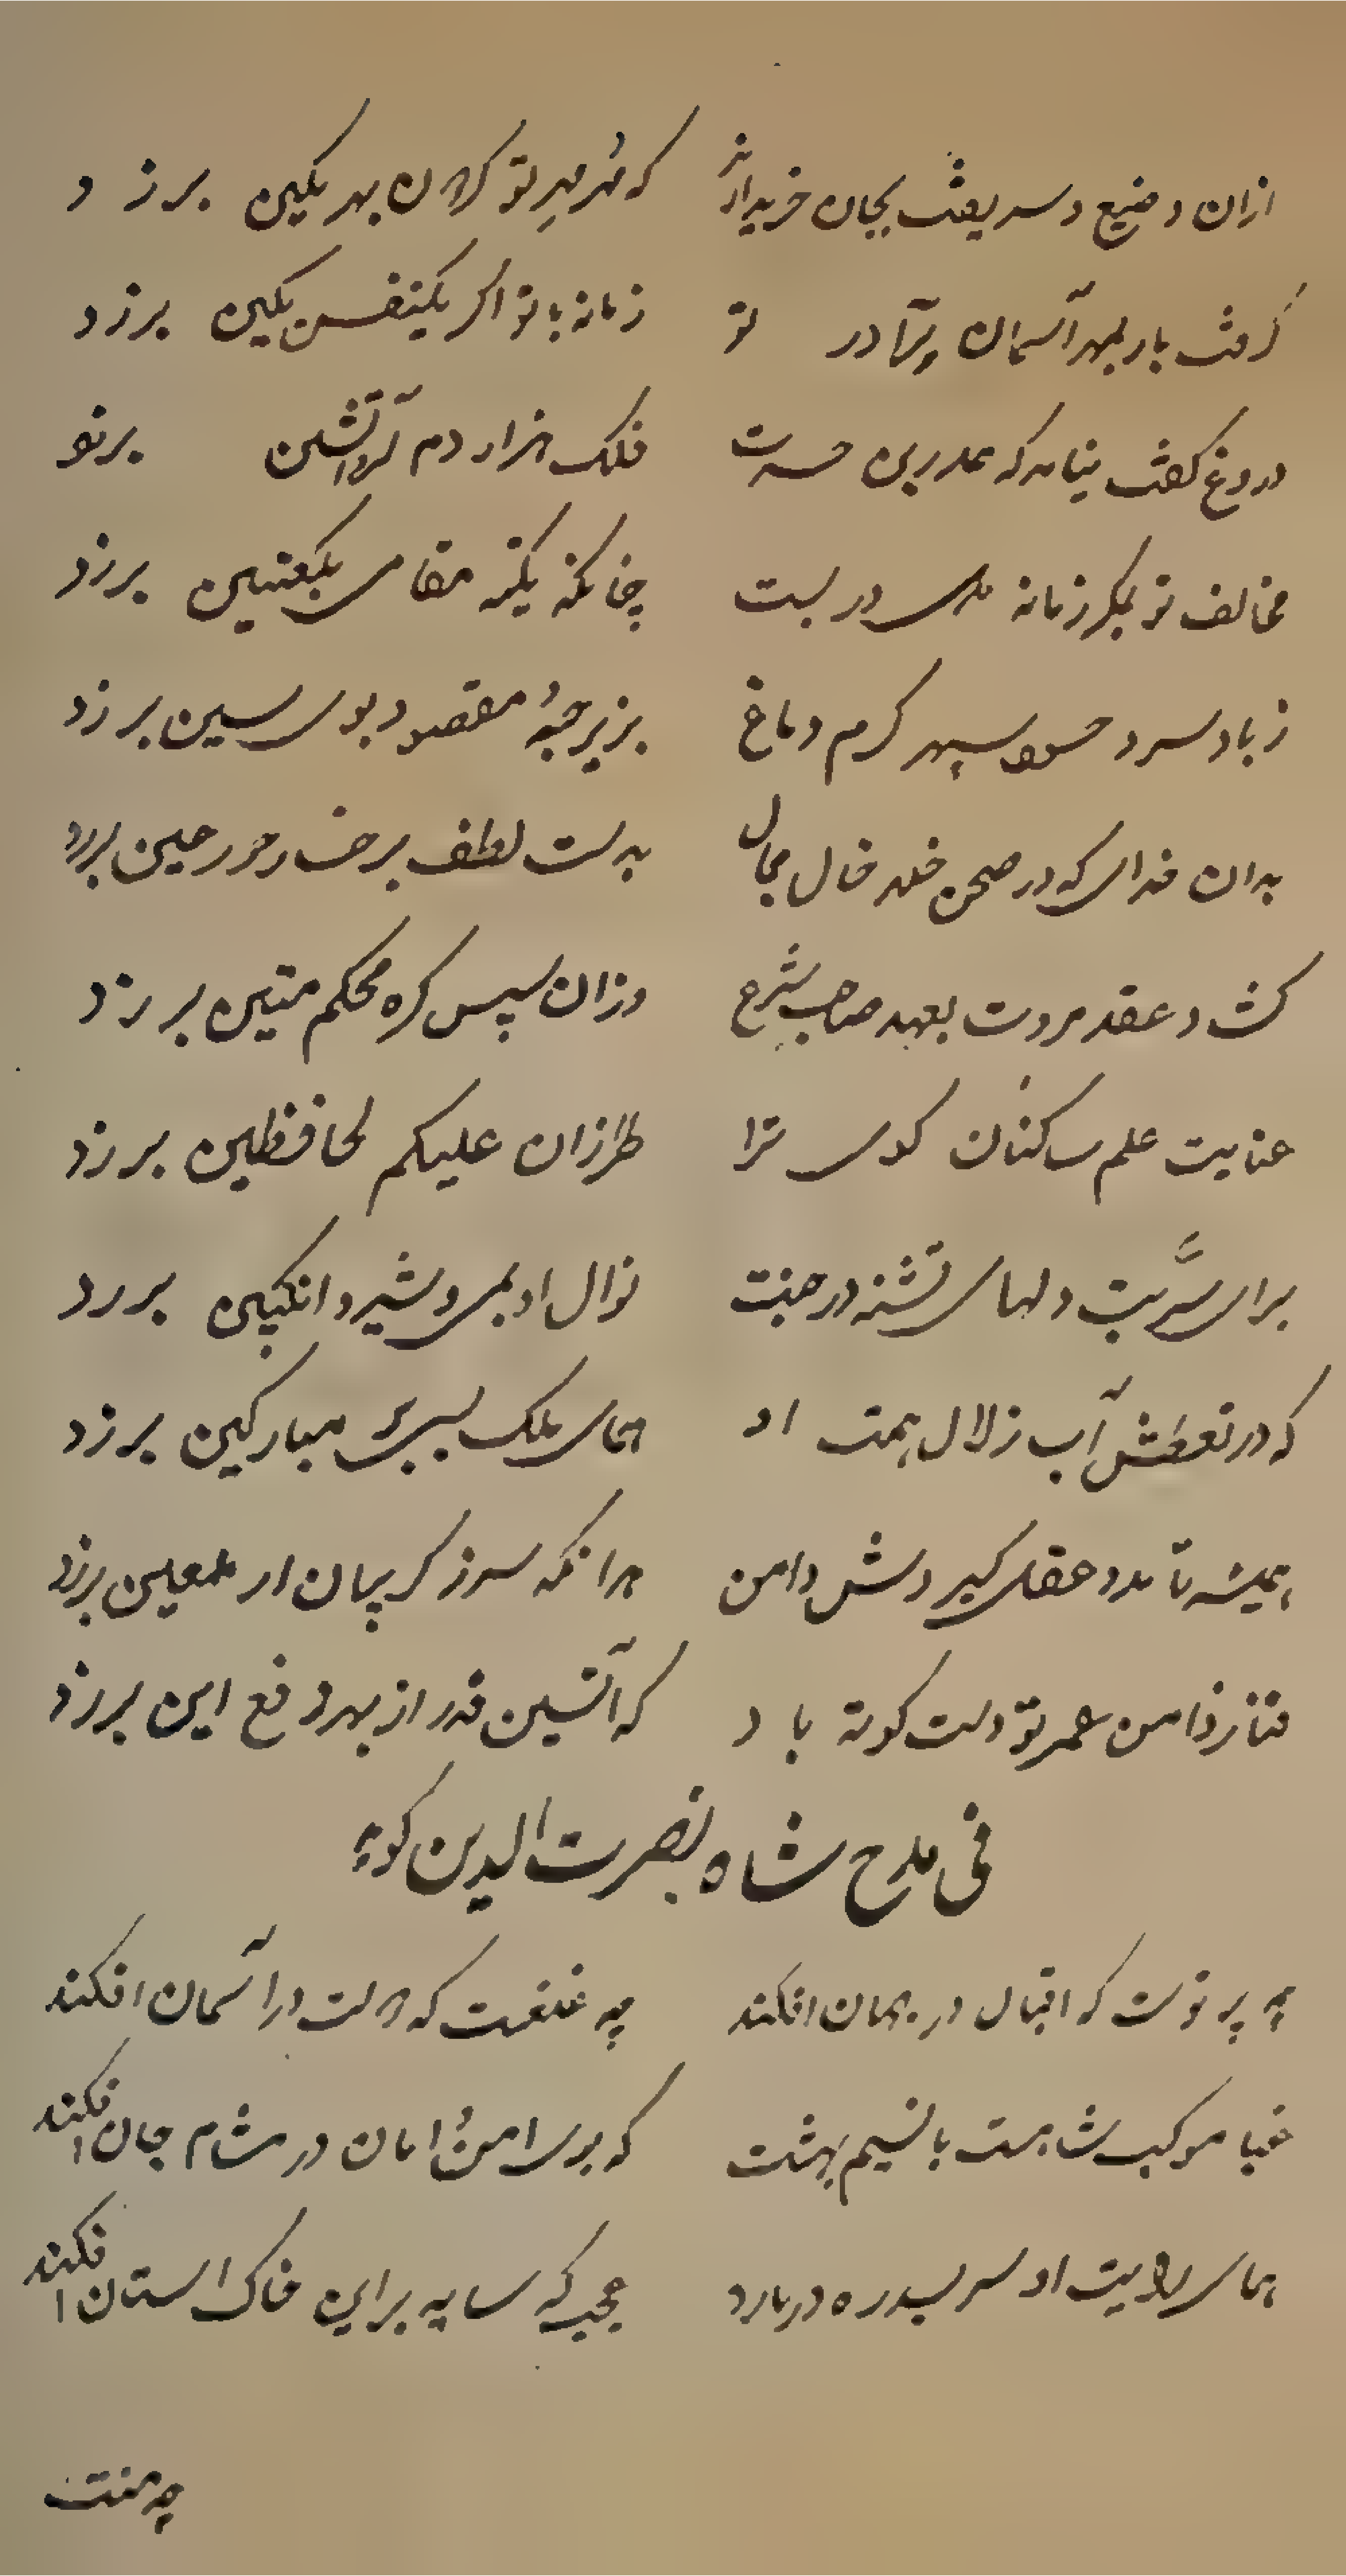 ازان وضیع و شریفت بجان خریدارند که مهر مهر تو کردن بهر نکین برزد
گرفت بار بمهر آسمان در تو زمانه با تو اگر یکنفس بکین برزد
دروغ گفت که حسرت فلک هزار دم آتشین برتو
مخالف تو بمکر زمانه در بست چنانکه یکته بکعبتین برزد
ز باد سرد حسود سپهر گرم دماغ بزیر جبهٔ مقصود برزد
بدان خدای که در صحن خلد خال جمال بدست لطف برخسار حور عین برزد
گشاد عقد مروت بعهد صاحب شرع وزان سپس گره محکم متین برزد
عنایت علم ساکنان کوی ترا طراز ان علیکم لحافظین برزد
برای شربت دلهای تشنه در جنت نوال او بمی و شیر و انگبین برزد
که در تعطش آب زلال همت او همای ملک مبارکین برزد
همیشه تا عقل گیردش دامن هرانکه سر ز گریبان برزد
فنا ز دامن عمر تو دست کوته باد که آستین قدر از بهر دفع این برزد
فی مدح شاه نصرت الدین گوید
چه پرتوست که اقبال در جهان افکند چه غلغست که دولت در آسمان افکند
غبار موکب شاهست یا نسیم بهشت که بوی امن و امان در مشام جان افکند
همای رایت او سر بسدره در نارد عجب که سایه برین خاک استان افکند
چه منت